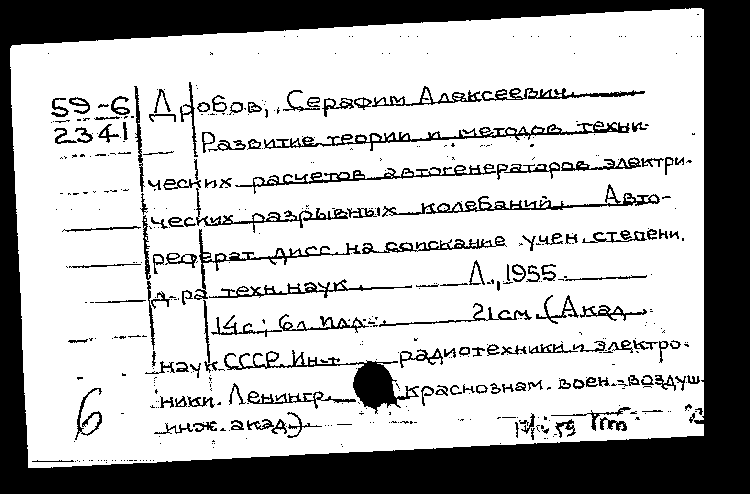 59-6 Дробов, Серафим Алексеевич.
2341 Развитие теории и методов техни-
ческих расчетов автогенераторов электри-
ческих разрывных колебаний. Авто-
реферат дисс. на соискание учен. степени.
д-ра техн. наук. Л., 1955.
14с; 21см. (Акад.
наук СССР. Ин-т радиотехники и электро-
ники. Ленингр. краснознам. воен.-воздуш.
инж. акад.)
6 59